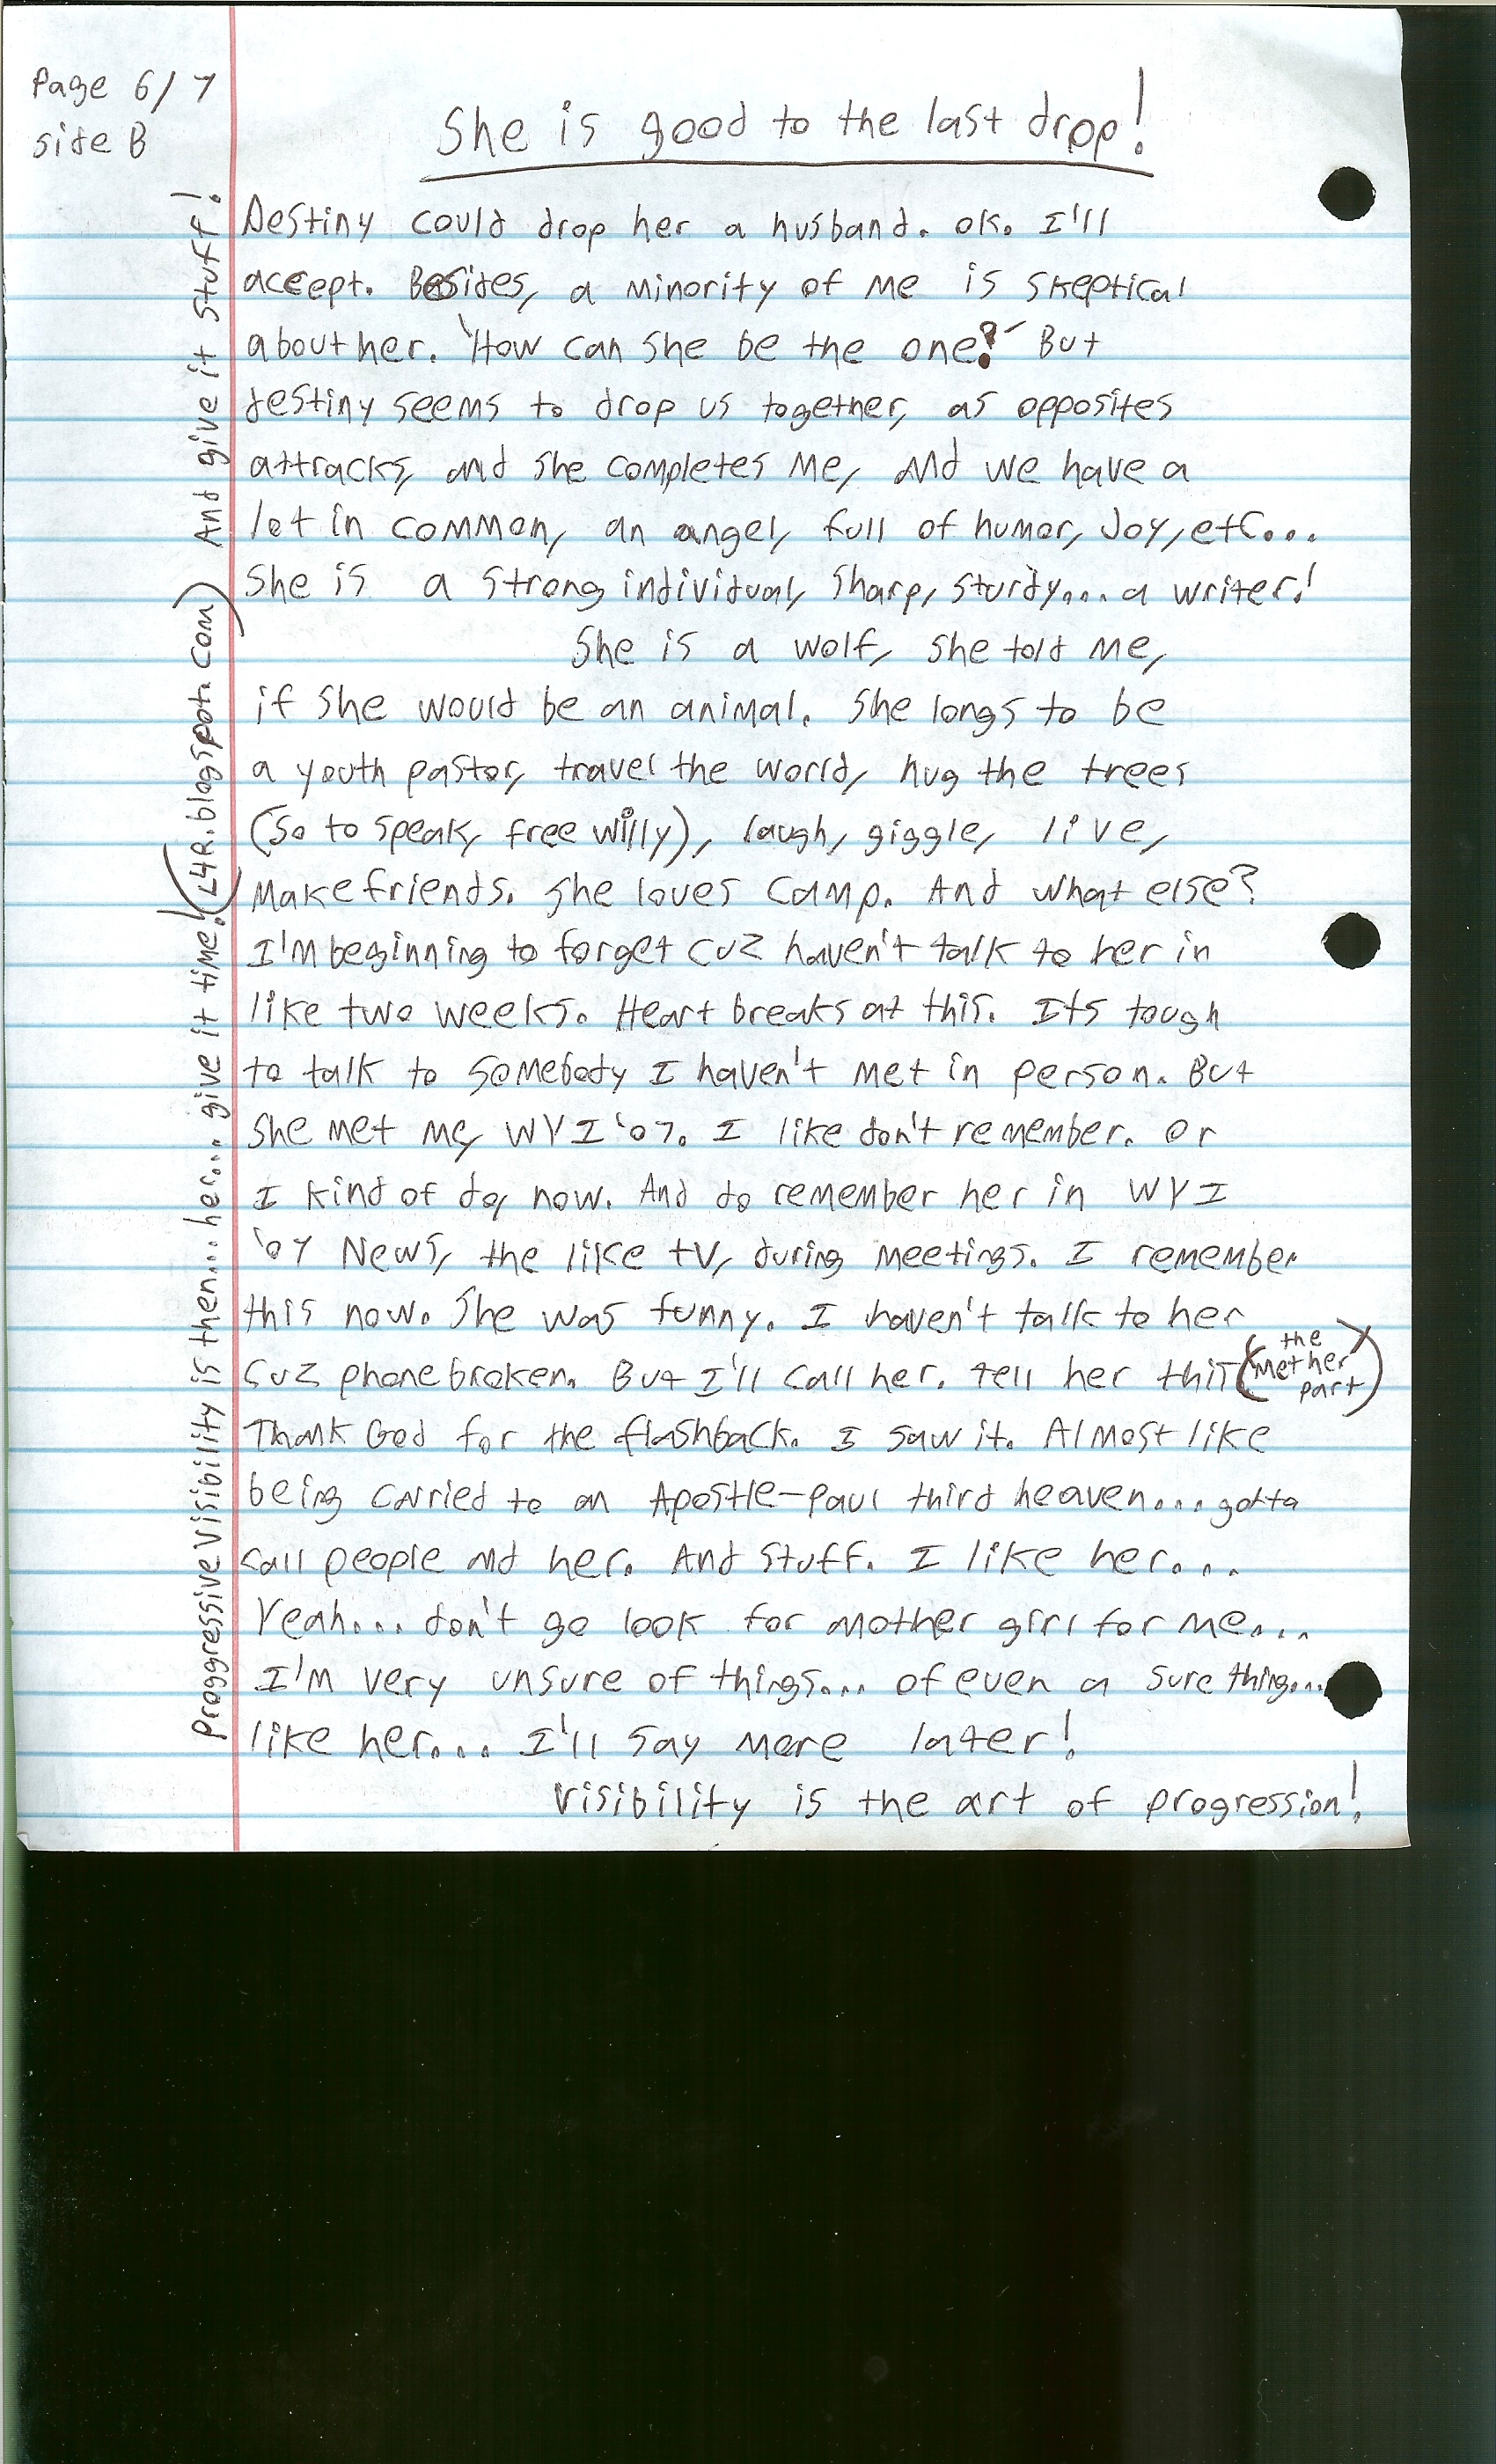 Page 6/7
side B
She is good to the last drop!
Destiny could drop her a husband. ok. I'll
accept. Besides, a minority of me is skeptical
about her. 'How can she be the one?' But
destiny seems to drop us together, as opposites
attracks, and she completes me, and we have a
lot in common, an angel, full of humor, Joy, etc...
She is a strong individual, sharp, sturdy... a writer!
She is a wolf, she told me,
if she would be an animal. She longs to be
a youth pastor, travel the world, hug the trees
(so to speak, free willy), laugh, giggle, live,
make friends. She loves camp. And what else?
I'm beginning to forget cuz haven't talk to her in
like two weeks. Heart breaks at this. Its tough
to talk to somebody I haven't met in person. But
she met me, WYI '07. I like don't remember. or
I kind of do, now. And do remember her in WYI
'07 News, the like tv, during meetings. I remember
this now. She was funny. I haven't talk to her
cuz phone broken. But I'll call her. tell her this (the
met her
part)
Thank God for the flashback. I saw it. Almost like
being carried to an Apostle-Paul third heaven... gotta
call people and her. And stuff. I like her...
Yeah... don't go look for another girl for me...
I'm very unsure of things... of even a sure thing...
like her... I'll say more later!
Visibility is the art of progression!
Proggressive Visibility is then... her... give it time! (L4R.blogspot.com) And give it stuff!